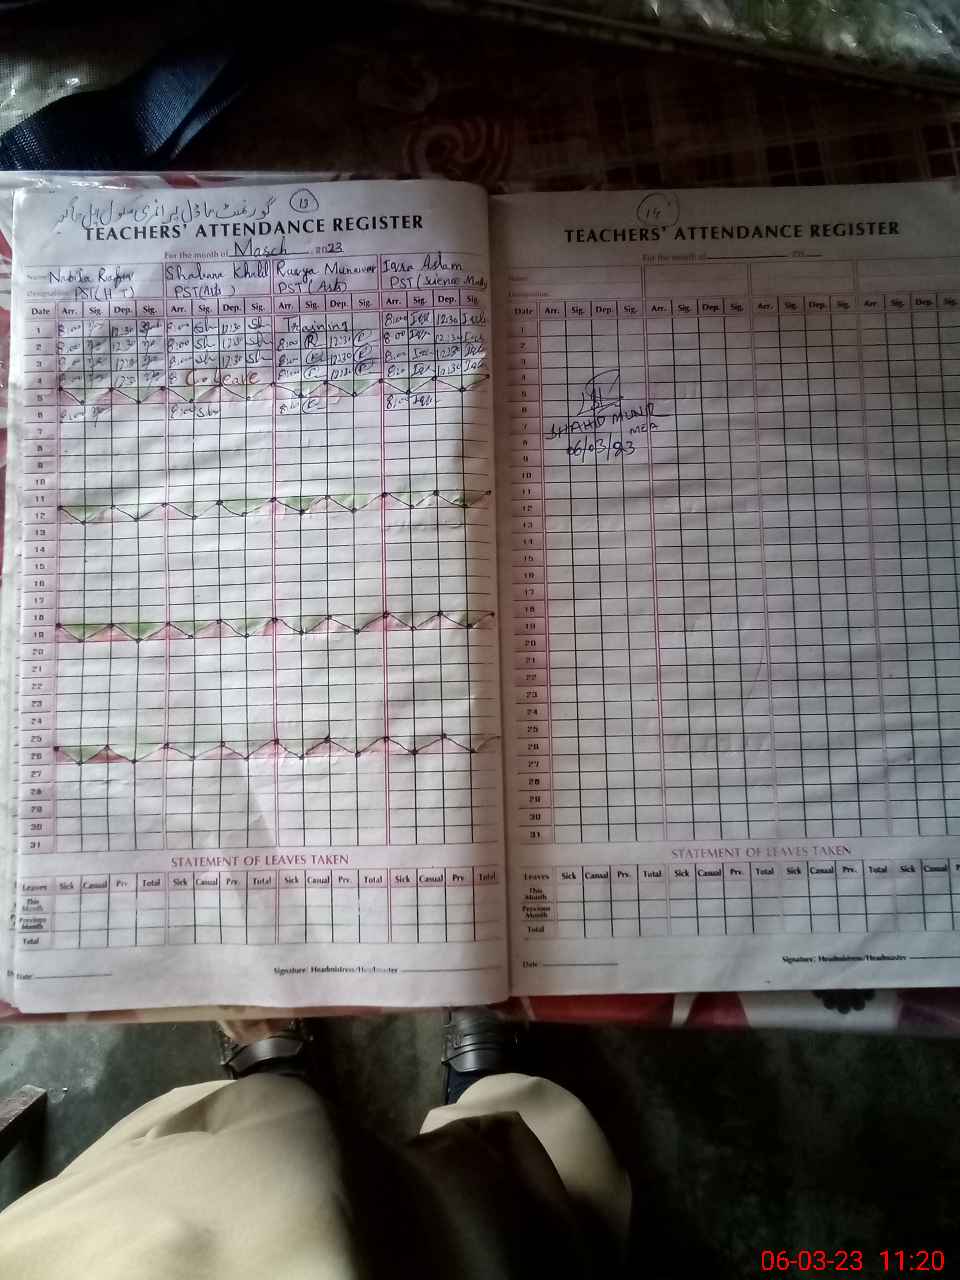 گورنمنٹ ماڈل پرائمری سکول
13
TEACHERS' ATTENDANCE REGISTER
For the month of March 2023
Name Shabana Khalil Iqra Aslam
Designation PST(HT) PST(Arts) PST(Arts) PST(Science Math)
Date Arr. Sig. Dep. Sig. Arr. Sig. Dep. Sig. Arr. Sig. Dep. Sig. Arr. Sig. Dep. Sig.
1 8:00 12:30 8:00 Sh 12:30 Sh Training 8:00 Iqra 12:30 Iqra
2 8:00 12:30 8:00 Sh 12:30 Sh 8:00 12:30 8:00 Iqra 12:30 Iqra
3 8:00 12:30 8:00 Sh 12:30 Sh 8:00 12:30 8:00 Iqra 12:30 Iqra
4 8:00 12:30 Leave 8:00 12:30 8:00 Iqra 12:30 Iqra
5
6 8:00 8:00 Sh 8:00 8:00 Iqra
7
8
9
10
11
12
13
14
15
16
17
18
19
20
21
22
23
24
25
26
27
28
29
30
31
STATEMENT OF LEAVES TAKEN
Leaves Sick Casual Prv. Total Sick Casual Prv. Total Sick Casual Prv. Total Sick Casual Prv. Total
This Month
Previous Month
Total
Date: Signature: Headmistress/Headmaster
14
TEACHERS' ATTENDANCE REGISTER
For the month of 20
Name
Designation
Date Arr. Sig. Dep. Sig. Arr. Sig. Dep. Sig. Arr. Sig. Dep. Sig. Arr. Sig. Dep. Sig.
1
2
3
4
5
6
7
8
9
10
11
12
13
14
15
16
17
18
19
20
21
22
23
24
25
26
27
28
29
30
31
SHAHID MUNIR
MEA
06/03/23
STATEMENT OF LEAVES TAKEN
Leaves Sick Casual Prv. Total Sick Casual Prv. Total Sick Casual Prv. Total Sick Casual
This Month
Previous Month
Total
Date: Signature: Headmistress/Headmaster
06-03-23 11:20